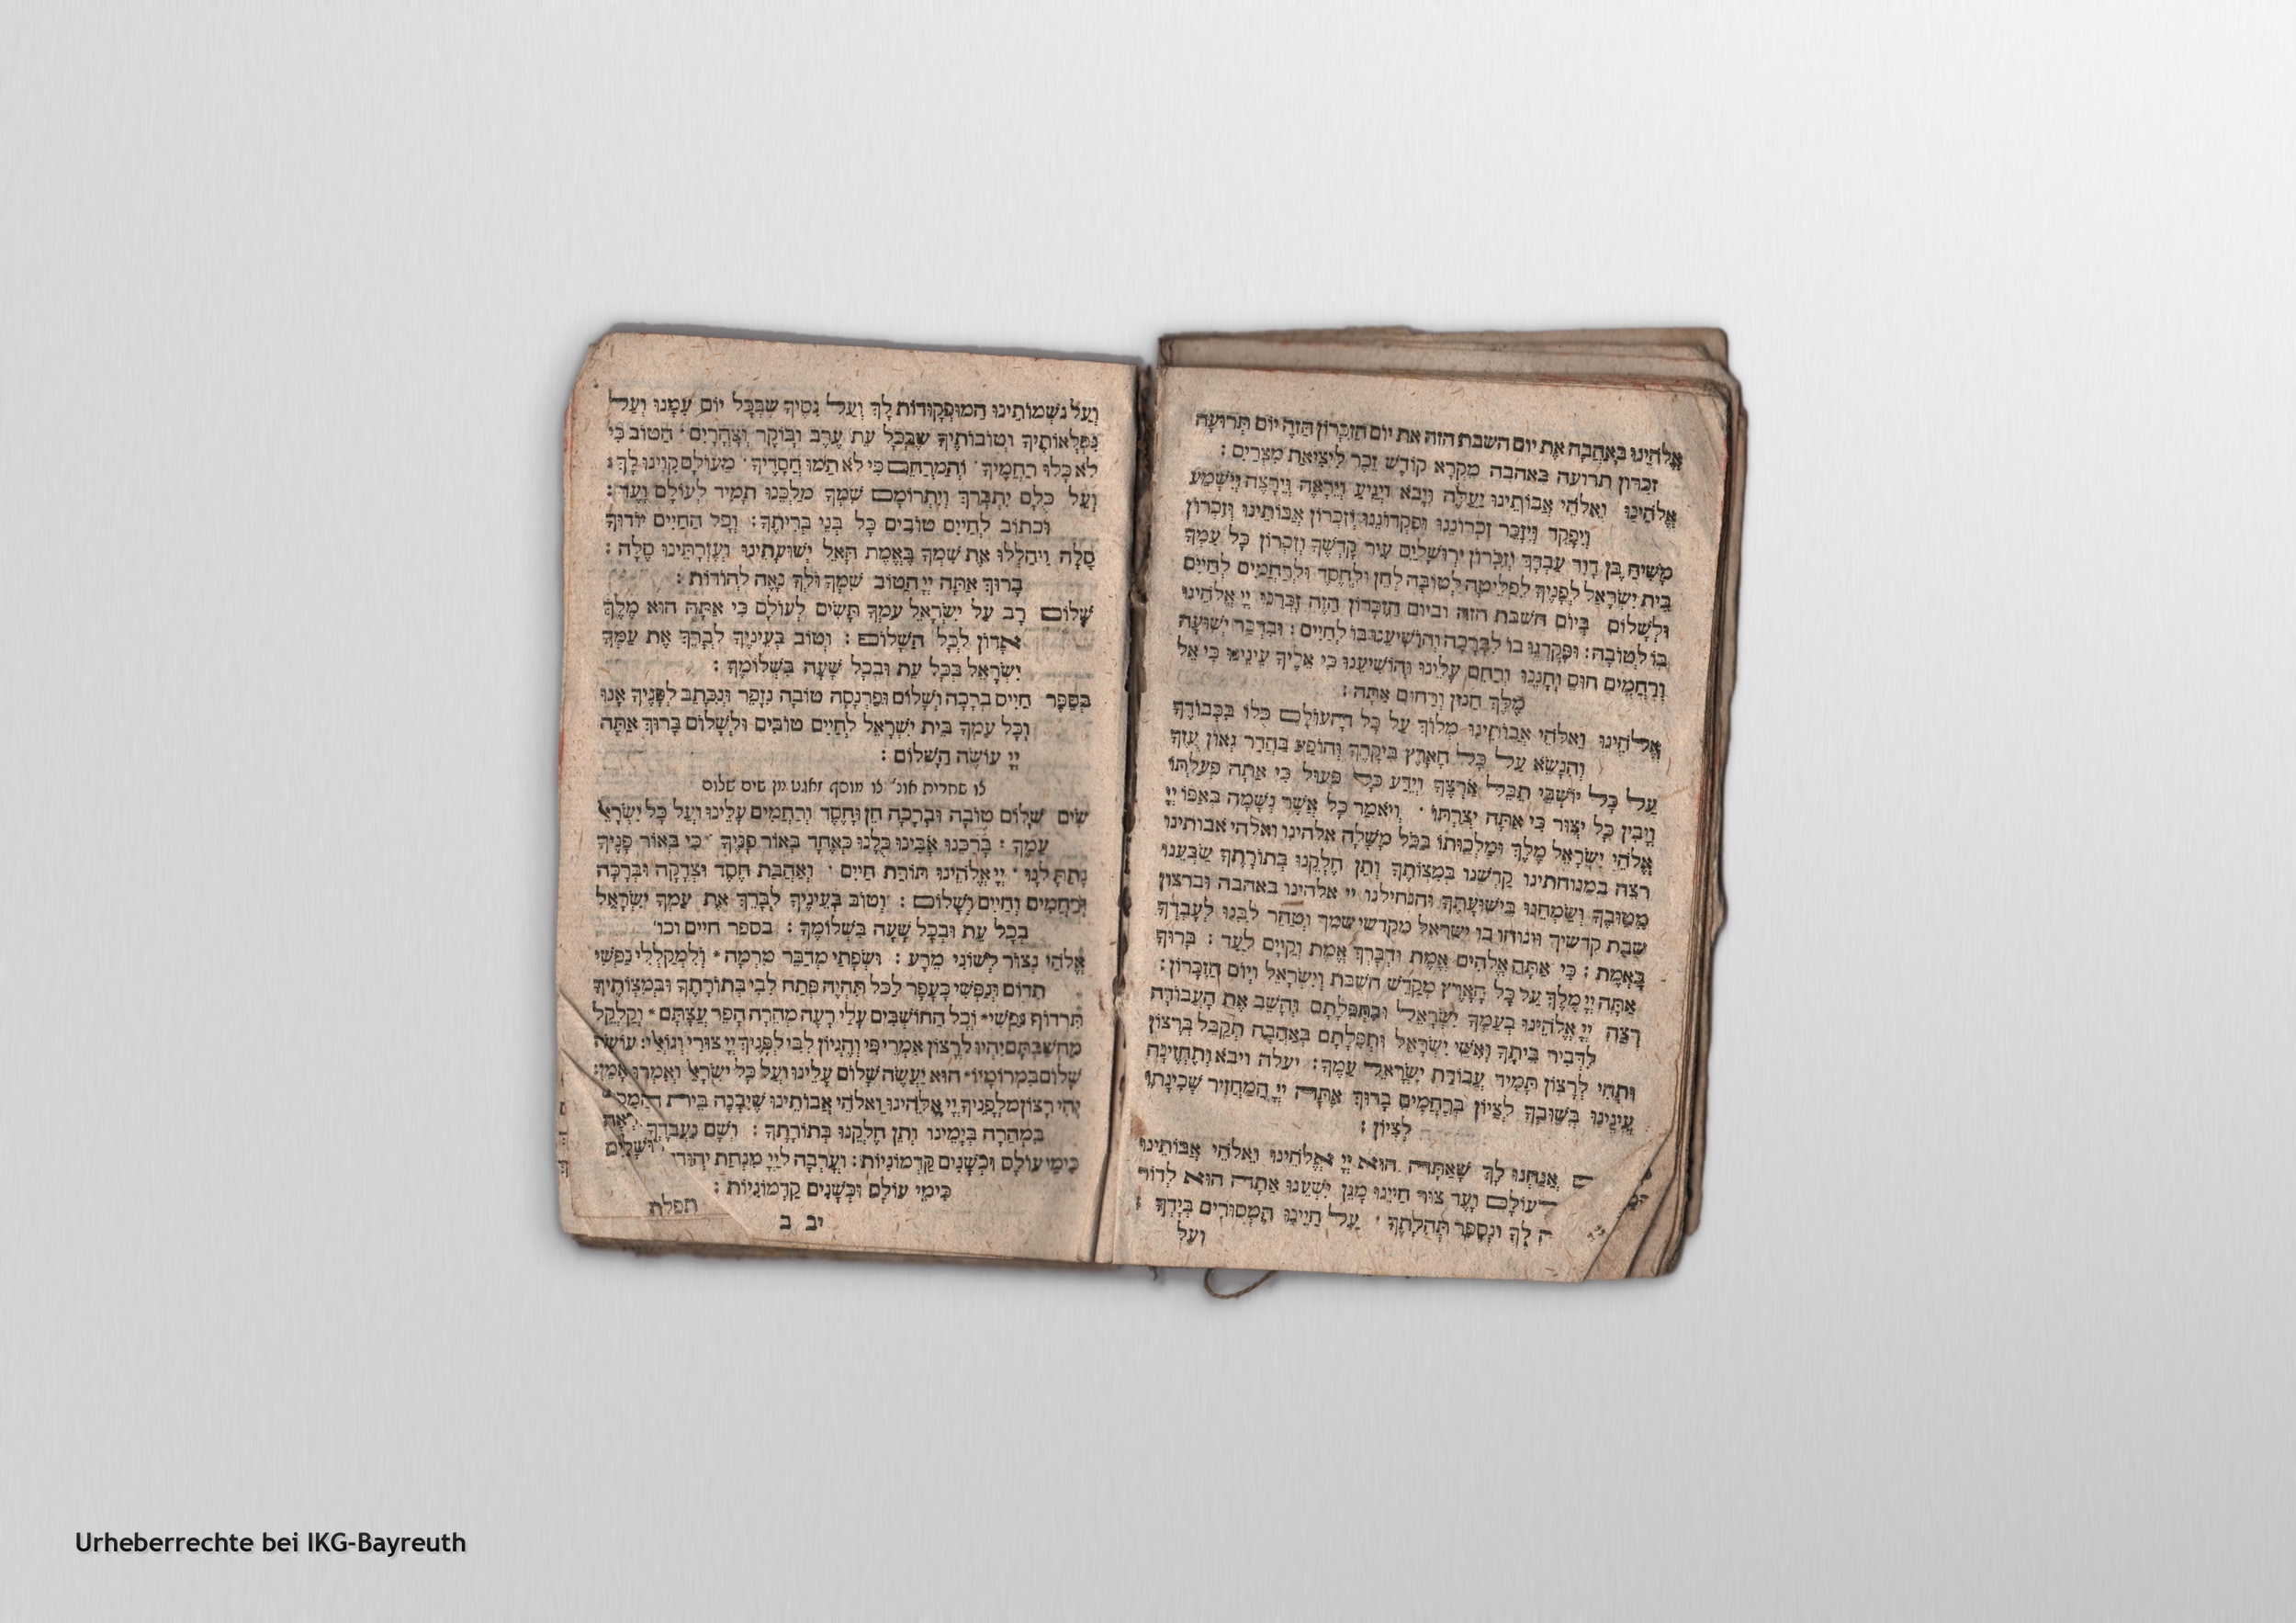 אֱלֹהֵינוּ בְּאַהֲבָה אֶת יום השבת הזה את יום הַזִכָּרוֹן הַזֶה יוֹם תְּרוּעָה
זכרון תרועה באהבה מִקְרָא קוֹדֶשׁ זֵכֶר לִיצִיאַת מִצְרַיִם :
אֱלֹהֵינוּ וֵאלֹהֵי אֲבוֹתֵינוּ יַעֲלֶה וְיָבֹא וְיַגִיעַ וְיֵרָאֶה וְיֵרָצֶה וְיִשָׁמַע
וְיִפָקֵד וְיִזָכֵר זִכְרוֹנֵנוּ וּפִקְדוֹנֵנוּ וְזִכְרוֹן אֲבוֹתֵינוּ וְזִכְרוֹן
מָשִׁיחַ בֶּן דָוִד עַבְדֶךָ וְזִכְרוֹן יְרוּשָׁלַיִם עִיר קָדְשֶׁךָ וְזִכְרוֹן כָּל עַמְךָ
בֵּית יִשְׂרָאֵל לְפָנֶיךָ לִפְלֵיטָה לְטוֹבָה לְחֵן וּלְחֶסֶד וּלְרַחֲמִים לְחַיִים
וּלְשָׁלוֹם בְּיוֹם השבת הזה וביום הַזִכָּרוֹן הַזֶה זָכְרֵנוּ יְיָ אֱלֹהֵינוּ
בּוֹ לְטוֹבָה : וּפָקְדֵנוּ בוֹ לִבְרָכָה וְהוֹשִׁיעֵנוּ בוֹ לְחַיִים : וּבִדְבַר יְשׁוּעָה
וְרַחֲמִים חוּס וְחָנֵנוּ וְרַחֵם עָלֵינוּ וְהוֹשִׁיעֵנוּ כִּי אֵלֶיךָ עֵינֵינוּ כִּי אֵל
מֶלֶךְ חַנוּן וְרַחוּם אָתָּה :
אֱלֹהֵינוּ וֵאלֹהֵי אֲבוֹתֵינוּ מְלוֹךְ עַל כָּל הָעוֹלָם כֻּלוֹ בִּכְבוֹדֶךָ
וְהִנָשֵׂא עַל כָּל הָאָרֶץ בִּיקָרֶךָ וְהוֹפַע בַּהֲדַר גְאוֹן עֻזֶךָ
עַל כָּל יוֹשְׁבֵי תֵבֵל אַרְצֶךָ וְיֵדַע כָּל פָּעוּל כִּי אַתָּה פְעַלְתּוֹ
וְיָבִין כָּל יְצוּר כִּי אַתָּה יְצַרְתּוֹ . וְיֹאמַר כָּל אֲשֶׁר נְשָׁמָה בְאַפּוֹ יְיָ
אֱלֹהֵי יִשְׂרָאֵל מֶלֶךְ וּמַלְכוּתוֹ בַּכֹּל מָשָׁלָה אלהינו ואלהי אבותינו
רצה במנוחתינו קַדְשֵׁנוּ בְּמִצְוֹתֶךָ וְתֵן חֶלְקֵנוּ בְּתוֹרָתֶךָ שַׂבְּעֵנוּ
מִטוּבֶךָ וְשַׂמְחֵנוּ בִּישׁוּעָתֶךָ והנחילנו יי אלהינו באהבה וברצון
שבת קדשיך וינוחו בו ישראל מקדשי שמך וְטַהֵר לִבֵּנוּ לְעָבְדֶךָ
בֶּאֱמֶת : כִּי אַתָּה אֱלֹהִים אֱמֶת וּדְבָרְךָ אֱמֶת וְקַיָים לָעַד : בָּרוּךְ
אַתָּה יְיָ מֶלֶךְ עַל כָּל הָאָרֶץ מְקַדֵשׁ הַשַׁבָּת וְיִשְׂרָאֵל וְיוֹם הַזִכָּרוֹן :
רְצֵה יְיָ אֱלֹהֵינוּ בְּעַמְךָ יִשְׂרָאֵל וּבִתְפִלָתָם וְהָשֵׁב אֶת הָעֲבוֹדָה
לִדְבִיר בֵּיתֶךָ וְאִשֵׁי יִשְׂרָאֵל וּתְפִלָתָם בְּאַהֲבָה תְקַבֵּל בְּרָצוֹן
וּתְהִי לְרָצוֹן תָּמִיד עֲבוֹדַת יִשְׂרָאֵל עַמֶךָ : יעלה ויבא וְתֶחֱזֶינָה
עֵינֵינוּ בְּשׁוּבְךָ לְצִיוֹן בְּרַחֲמִים בָּרוּךְ אַתָּה יְיָ הַמַחֲזִיר שְׁכִינָתוֹ
לְצִיוֹן :
אֲנַחְנוּ לָךְ שָׁאַתָּה הוּא יְיָ אֱלֹהֵינוּ וֵאלֹהֵי אֲבוֹתֵינוּ
עוֹלָם וָעֶד צוּר חַיֵינוּ מָגֵן יִשְׁעֵנוּ אַתָּה הוּא לְדוֹר
לְךָ וּנְסַפֵּר תְּהִלָתֶךָ . עַל חַיֵינוּ הַמְסוּרִים בְּיָדֶךָ :
ועל
וְעַל נִשְׁמוֹתֵינוּ הַמוּפְקָדוֹת לָךְ וְעַל נִסֶיךָ שֶׁבְּכָל יוֹם עִמָנוּ וְעַל
נִפְלְאוֹתֶיךָ וְטוֹבוֹתֶיךָ שֶׁבְּכָל עֵת עֶרֶב וָבוֹקֶר וְצָהֳרָיִם . הַטוֹב כִּי
לֹא כָלוּ רַחֲמֶיךָ . וְהַמְרַחֵם כִּי לֹא תַמוּ חֲסָדֶיךָ . מֵעוֹלָם קִוִינוּ לָךְ :
וְעַל כֻּלָם יִתְבָּרַךְ וְיִתְרוֹמַם שִׁמְךָ מַלְכֵּנוּ תָּמִיד לְעוֹלָם וָעֶד :
וּכְתוֹב לְחַיִים טוֹבִים כָּל בְּנֵי בְרִיתֶךָ : וְכָל הַחַיִים יוֹדוּךָ
סֶלָה וִיהַלְלוּ אֶת שִׁמְךָ בֶּאֱמֶת הָאֵל יְשׁוּעָתֵינוּ וְעֶזְרָתֵינוּ סֶלָה :
בָּרוּךְ אַתָּה יְיָ הַטוֹב שִׁמְךָ וּלְךָ נָאֶה לְהוֹדוֹת :
שָׁלוֹם רָב עַל יִשְׂרָאֵל עַמְךָ תָּשִׂים לְעוֹלָם כִּי אַתָּה הוּא מֶלֶךְ
אָדוֹן לְכָל הַשָׁלוֹם : וְטוֹב בְּעֵינֶיךָ לְבָרֵךְ אֶת עַמְךָ
יִשְׂרָאֵל בְּכָל עֵת וּבְכָל שָׁעָה בִּשְׁלוֹמֶךָ :
בְּסֵפֶר חַיִים בְּרָכָה וְשָׁלוֹם וּפַרְנָסָה טוֹבָה נִזָכֵר וְנִכָּתֵב לְפָנֶיךָ אָנוּ
וְכָל עַמְךָ בֵּית יִשְׂרָאֵל לְחַיִים טוֹבִים וּלְשָׁלוֹם בָּרוּךְ אַתָּה
יְיָ עוֹשֵׂה הַשָׁלוֹם :
צו שחרית אונ' צו מוסף זאגט מן שים שלום
שִׂים שָׁלוֹם טוֹבָה וּבְרָכָה חֵן וָחֶסֶד וְרַחֲמִים עָלֵינוּ וְעַל כָּל יִשְׂרָאֵל
עַמֶךָ : בָּרְכֵנוּ אָבִינוּ כֻּלָנוּ כְּאֶחָד בְּאוֹר פָּנֶיךָ . כִּי בְאוֹר פָּנֶיךָ
נָתַתָּ לָנוּ . יְיָ אֱלֹהֵינוּ תּוֹרַת חַיִים . וְאַהֲבַת חֶסֶד וּצְדָקָה וּבְרָכָה
וְרַחֲמִים וְחַיִים וְשָׁלוֹם : וְטוֹב בְּעֵינֶיךָ לְבָרֵךְ אֶת עַמְךָ יִשְׂרָאֵל
בְּכָל עֵת וּבְכָל שָׁעָה בִּשְׁלוֹמֶךָ : בספר חיים וכו'
אֱלֹהַי נְצוֹר לְשׁוֹנִי מֵרָע : וּשְׂפָתַי מִדַבֵּר מִרְמָה * וְלִמְקַלְלַי נַפְשִׁי
תִדוֹם וְנַפְשִׁי כֶּעָפָר לַכֹּל תִּהְיֶה פְּתַח לִבִּי בְּתוֹרָתֶךָ וּבְמִצְוֹתֶיךָ
תִּרְדוֹף נַפְשִׁי * וְכָל הַחוֹשְׁבִים עָלַי רָעָה מְהֵרָה הָפֵר עֲצָתָם * וְקַלְקֵל
מַחְשְׁבֹתָם יִהְיוּ לְרָצוֹן אִמְרֵי פִי וְהֶגְיוֹן לִבִּי לְפָנֶיךָ יְיָ צוּרִי וְגוֹאֲלִי : עוֹשֶׂה
שָׁלוֹם בִּמְרוֹמָיו * הוּא יַעֲשֶׂה שָׁלוֹם עָלֵינוּ וְעַל כָּל יִשְׂרָאֵל וְאִמְרוּ אָמֵן :
יְהִי רָצוֹן מִלְפָנֶיךָ יְיָ אֱלֹהֵינוּ וֵאלֹהֵי אֲבוֹתֵינוּ שֶׁיִבָּנֶה בֵּית
בִּמְהֵרָה בְּיָמֵינוּ וְתֵן חֶלְקֵנוּ בְּתוֹרָתֶךָ : וְשָׁם נַעֲבָדְךָ
כִּימֵי עוֹלָם וּכְשָׁנִים קַדְמוֹנִיוֹת : וְעָרְבָה לַייָ מִנְחַת
כִּימֵי עוֹלָם וּכְשָׁנִים קַדְמוֹנִיוֹת :
יב ב
תפלת
Urheberrechte bei IKG-Bayreuth